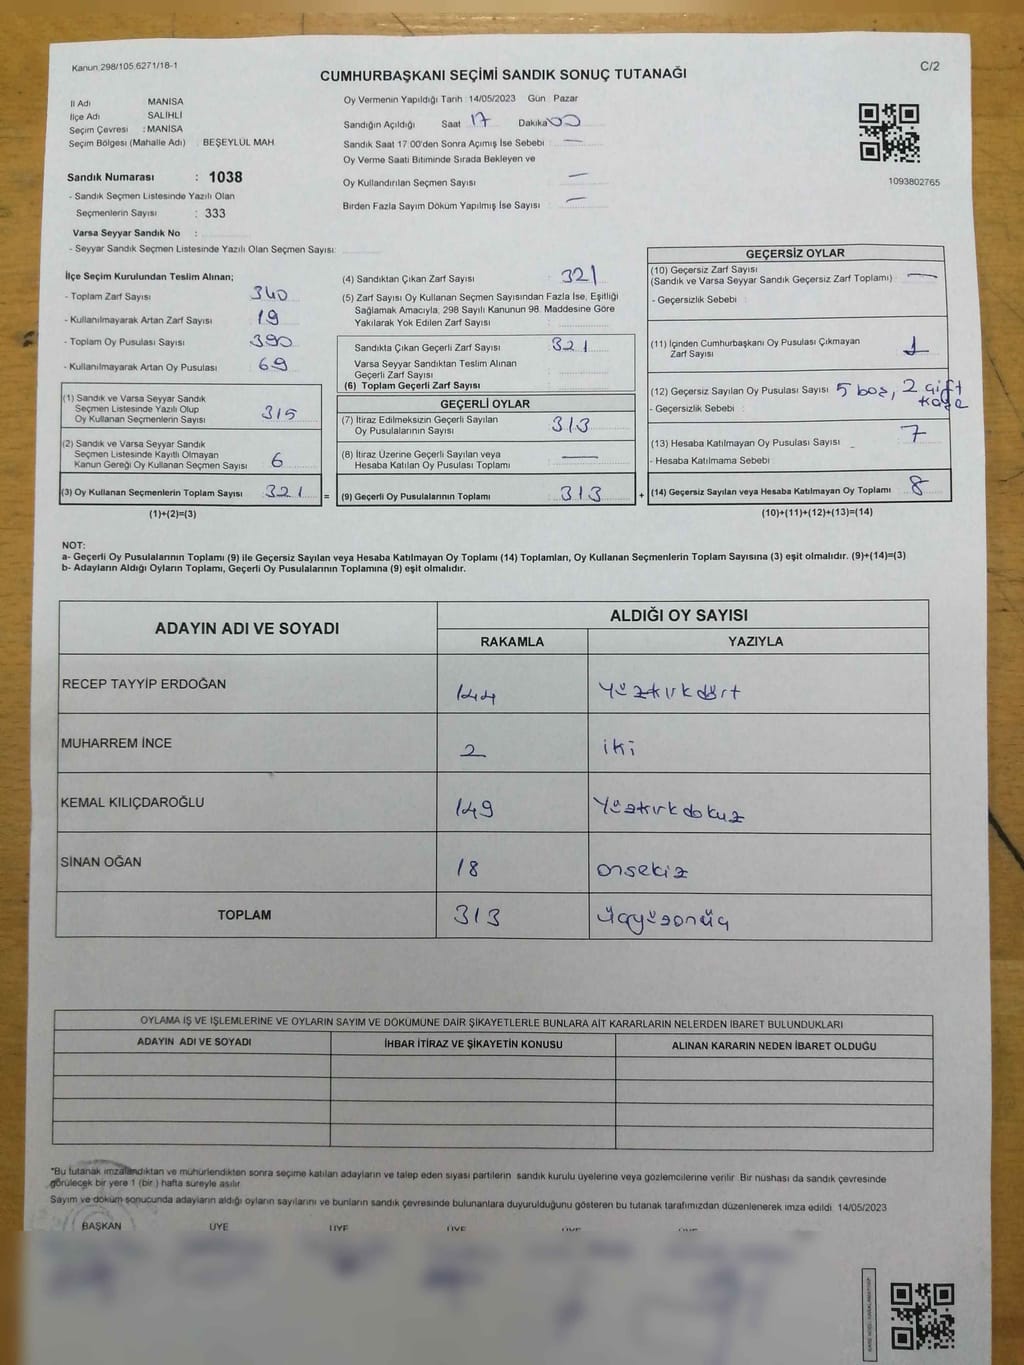 Kanun 298/105,6271/18-1
C/2
CUMHURBAŞKANI SEÇİMİ SANDIK SONUÇ TUTANAĞI
İl Adı MANİSA
İlçe Adı SALİHLİ
Seçim Çevresi : MANİSA
Seçim Bölgesi (Mahalle Adı) : BEŞEYLÜL MAH.
Sandık Numarası : 1038
- Sandık Seçmen Listesinde Yazılı Olan
Seçmenlerin Sayısı : 333
Varsa Seyyar Sandık No :
- Seyyar Sandık Seçmen Listesinde Yazılı Olan Seçmen Sayısı:
Oy Vermenin Yapıldığı Tarih 14/05/2023 Gün Pazar
Sandığın Açıldığı Saat 17 Dakika 00
Sandık Saat 17:00'den Sonra Açımış İse Sebebi —
Oy Verme Saati Bitiminde Sırada Bekleyen ve
Oy Kullandırılan Seçmen Sayısı —
Birden Fazla Sayım Döküm Yapılmış İse Sayısı —
1093802765
İlçe Seçim Kurulundan Teslim Alınan;
- Toplam Zarf Sayısı 340
- Kullanılmayarak Artan Zarf Sayısı 19
- Toplam Oy Pusulası Sayısı 390
- Kullanılmayarak Artan Oy Pusulası 69
(1) Sandık ve Varsa Seyyar Sandık
Seçmen Listesinde Yazılı Olup
Oy Kullanan Seçmenlerin Sayısı 315
(2) Sandık ve Varsa Seyyar Sandık
Seçmen Listesinde Kayıtlı Olmayan
Kanun Gereği Oy Kullanan Seçmen Sayısı 6
(3) Oy Kullanan Seçmenlerin Toplam Sayısı 321 =
(1)+(2)=(3)
(4) Sandıktan Çıkan Zarf Sayısı 321
(5) Zarf Sayısı Oy Kullanan Seçmen Sayısından Fazla İse, Eşitliği
Sağlamak Amacıyla, 298 Sayılı Kanunun 98. Maddesine Göre
Yakılarak Yok Edilen Zarf Sayısı
Sandıkta Çıkan Geçerli Zarf Sayısı 321
Varsa Seyyar Sandıktan Teslim Alınan
Geçerli Zarf Sayısı
(6) Toplam Geçerli Zarf Sayısı
GEÇERLİ OYLAR
(7) İtiraz Edilmeksizin Geçerli Sayılan
Oy Pusulalarının Sayısı 313
(8) İtiraz Üzerine Geçerli Sayılan veya
Hesaba Katılan Oy Pusulası Toplamı —
(9) Geçerli Oy Pusulalarının Toplamı 313 +
GEÇERSİZ OYLAR
(10) Geçersiz Zarf Sayısı
(Sandık ve Varsa Seyyar Sandık Geçersiz Zarf Toplamı) —
- Geçersizlik Sebebi :
(11) İçinden Cumhurbaşkanı Oy Pusulası Çıkmayan
Zarf Sayısı 1
(12) Geçersiz Sayılan Oy Pusulası Sayısı 5 boş, 2 çift
- Geçersizlik Sebebi : kaşe
(13) Hesaba Katılmayan Oy Pusulası Sayısı 7
- Hesaba Katılmama Sebebi
(14) Geçersiz Sayılan veya Hesaba Katılmayan Oy Toplamı 8
(10)+(11)+(12)+(13)=(14)
NOT:
a- Geçerli Oy Pusulalarının Toplamı (9) ile Geçersiz Sayılan veya Hesaba Katılmayan Oy Toplamı (14) Toplamları, Oy Kullanan Seçmenlerin Toplam Sayısına (3) eşit olmalıdır. (9)+(14)=(3)
b- Adayların Aldığı Oyların Toplamı, Geçerli Oy Pusulalarının Toplamına (9) eşit olmalıdır.
ADAYIN ADI VE SOYADI ALDIĞI OY SAYISI
RAKAMLA YAZIYLA
RECEP TAYYİP ERDOĞAN 144 Yüzkırkdört
MUHARREM İNCE 2 iki
KEMAL KILIÇDAROĞLU 149 Yüzkırkdokuz
SİNAN OĞAN 18 onsekiz
TOPLAM 313 üçyüzonüç
OYLAMA İŞ VE İŞLEMLERİNE VE OYLARIN SAYIM VE DÖKÜMÜNE DAİR ŞİKAYETLERLE BUNLARA AİT KARARLARIN NELERDEN İBARET BULUNDUKLARI
ADAYIN ADI VE SOYADI İHBAR İTİRAZ VE ŞİKAYETİN KONUSU ALINAN KARARIN NEDEN İBARET OLDUĞU
*Bu tutanak imzalandıktan ve mühürlendikten sonra seçime katılan adayların ve talep eden siyasi partilerin sandık kurulu üyelerine veya gözlemcilerine verilir. Bir nüshası da sandık çevresinde
görülecek bir yere 1 (bir ) hafta süreyle asılır.
Sayım ve döküm sonucunda adayların aldığı oyların sayılarını ve bunların sandık çevresinde bulunanlara duyurulduğunu gösteren bu tutanak tarafımızdan düzenlenerek imza edildi. 14/05/2023
BAŞKAN ÜYE ÜYE ÜYE